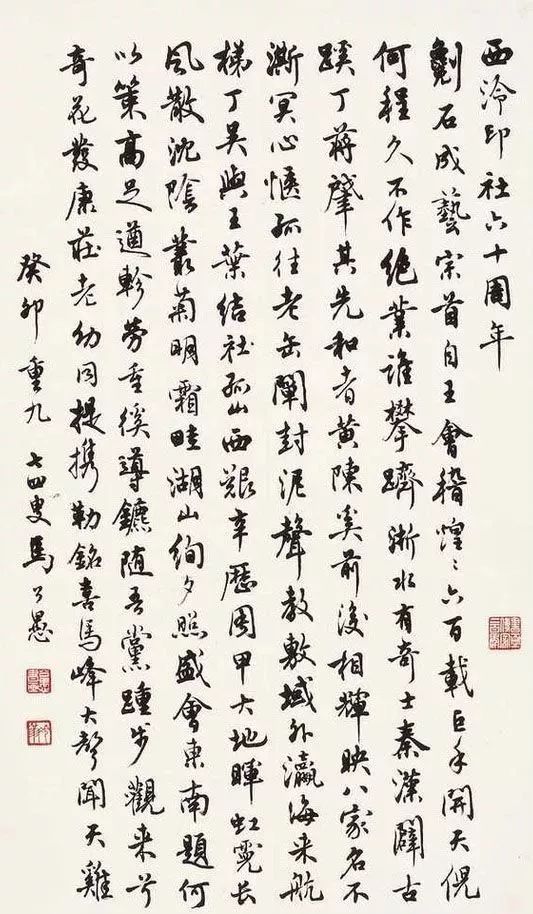 西泠印社六十周年
劖石成藝宗首自王會稽煌〻六百載巨手開天倪
何程久不作絕業誰攀躋浙水有奇士秦漢闢古
蹊丁蔣肇其先和者黃陳奚前後相輝映八家名不
澌冥心愜孤往老缶闡封泥聲教敷域外瀛海来航
梯丁吳與王葉結社孤山西艱辛歷周甲大地暉虹霓长
風散沈陰叢菊明霜畦湖山絢夕照盛會東南題何
以策高足遒軫勞重徯導鑣随吾黨踵步觀来兮
奇花發康莊老幼同提携勒銘喜馬峰大聲聞天雞
癸卯重九 七四叟馬公愚